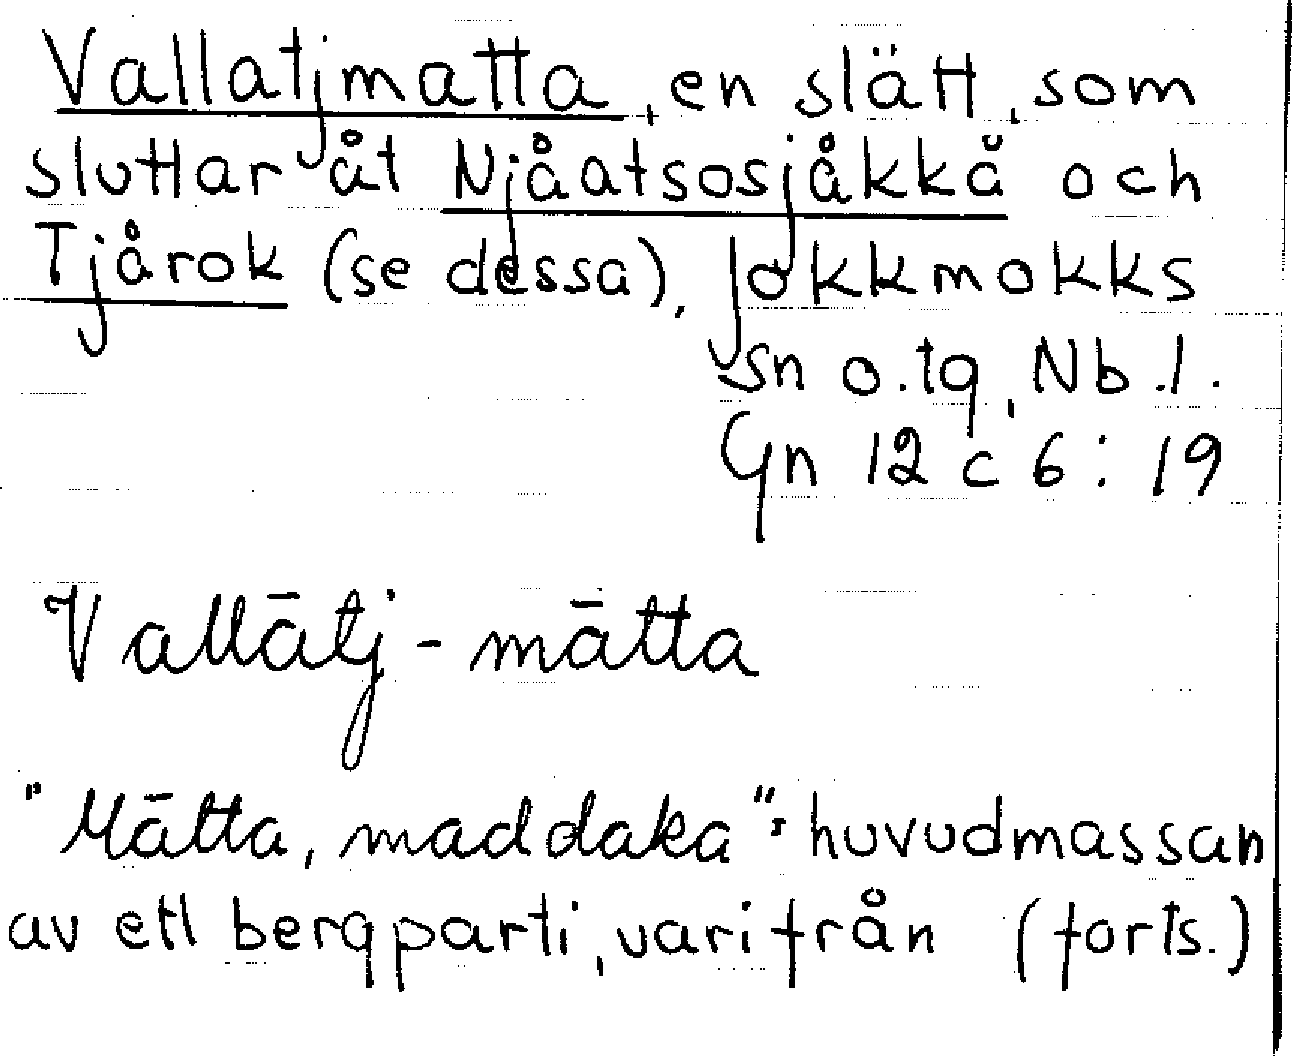 Vallatjmatta, en slätt, som
sluttar åt Njåatsosjåkkă och
Tjårok (se dessa), Jokkmokks
sn o. tg, Nb. l.
Gn 12 c 6 : 19
Vallātj - mātta
"Mātta, maddaka": huvudmassan
av ett bergparti, varifrån (forts.)